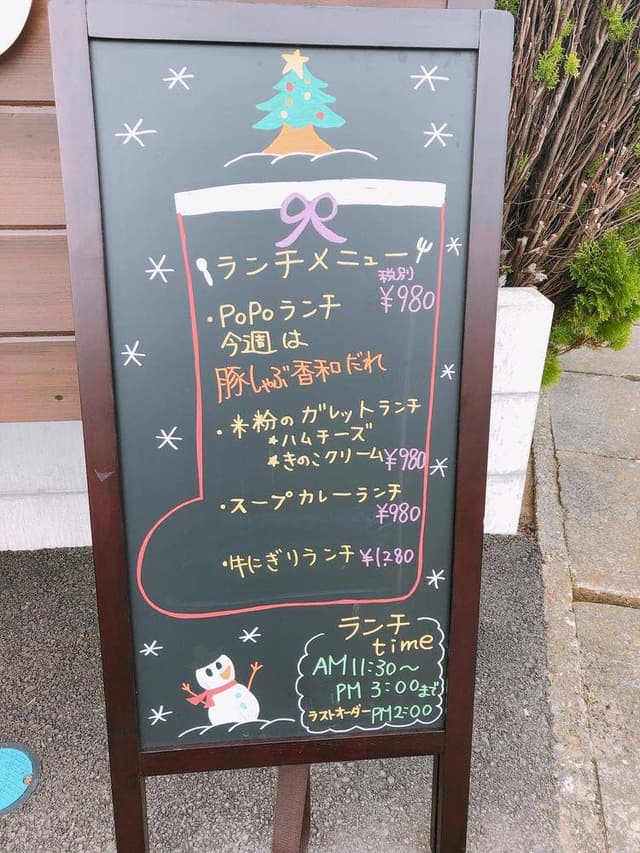 ランチメニュー
税別
・PoPoランチ ¥980
今週は
豚しゃぶ香和だれ
・米粉のガレットランチ
*ハムチーズ
*きのこクリーム ¥980
・スープカレーランチ
¥980
・牛にぎりランチ ¥1280
ランチ
time
AM11:30〜
PM 3:00まで
ラストオーダーPM2:00